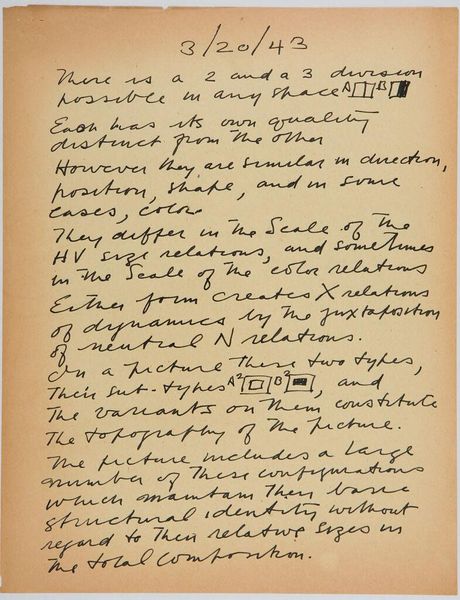 3/20/43
There is a 2 and a 3 division
possible in any space A B
Each has its own quality
distinct from the other
However they are similar in direction,
position, shape, and in some
cases, color.
They differ in the Scale of the
HV size relations, and sometimes
in the Scale of the color relations
Either form creates X relations
of dynamics by the juxtaposition
of neutral N relations.
In a picture these two types,
their sub-types A² B², and
the variants on them constitute
the topography of the picture.
The picture includes a large
number of these configurations
which maintain their basic
structural identity without
regard to their relative sizes in
the total composition.